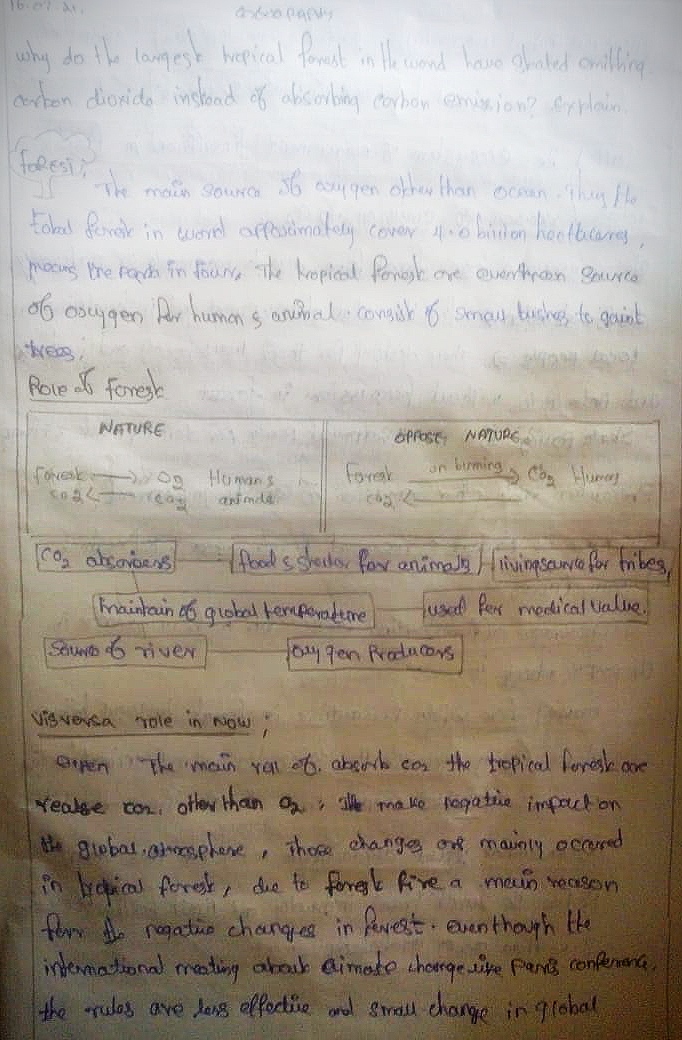 16.07.21.
Geography
why do the largest tropical forest in the world have started emitting
carbon dioxide instead of absorbing carbon emission? explain.
forest;
The main source of oxygen other than ocean. They the
total forest in world approximately cover 4.0 billion
means the in four, The tropical forest are source
of oxygen for human & animal. consist of small bushes to gaint
trees.
Role of forest
NATURE
OPPOSE NATURE
forest → O2 Humans
CO2 ← CO2
forest on burning → CO2 Human
CO2 ←
CO2 absorbers
food & shelter for animals
living source for tribes,
maintain of global temperature
used for medical value.
Source of river
oxygen Producers
Visversa role in now ;
The main of absorb co2 the tropical forest are
co2. other than O2 ; make negative impact on
the global atmosphere , Those changes are mainly occured
in tropical forest, due to forest fire a main reason
for the negative changes in forest. eventhough the
international meeting about climate change like Paris conference.
the rules are less effective and small change in global